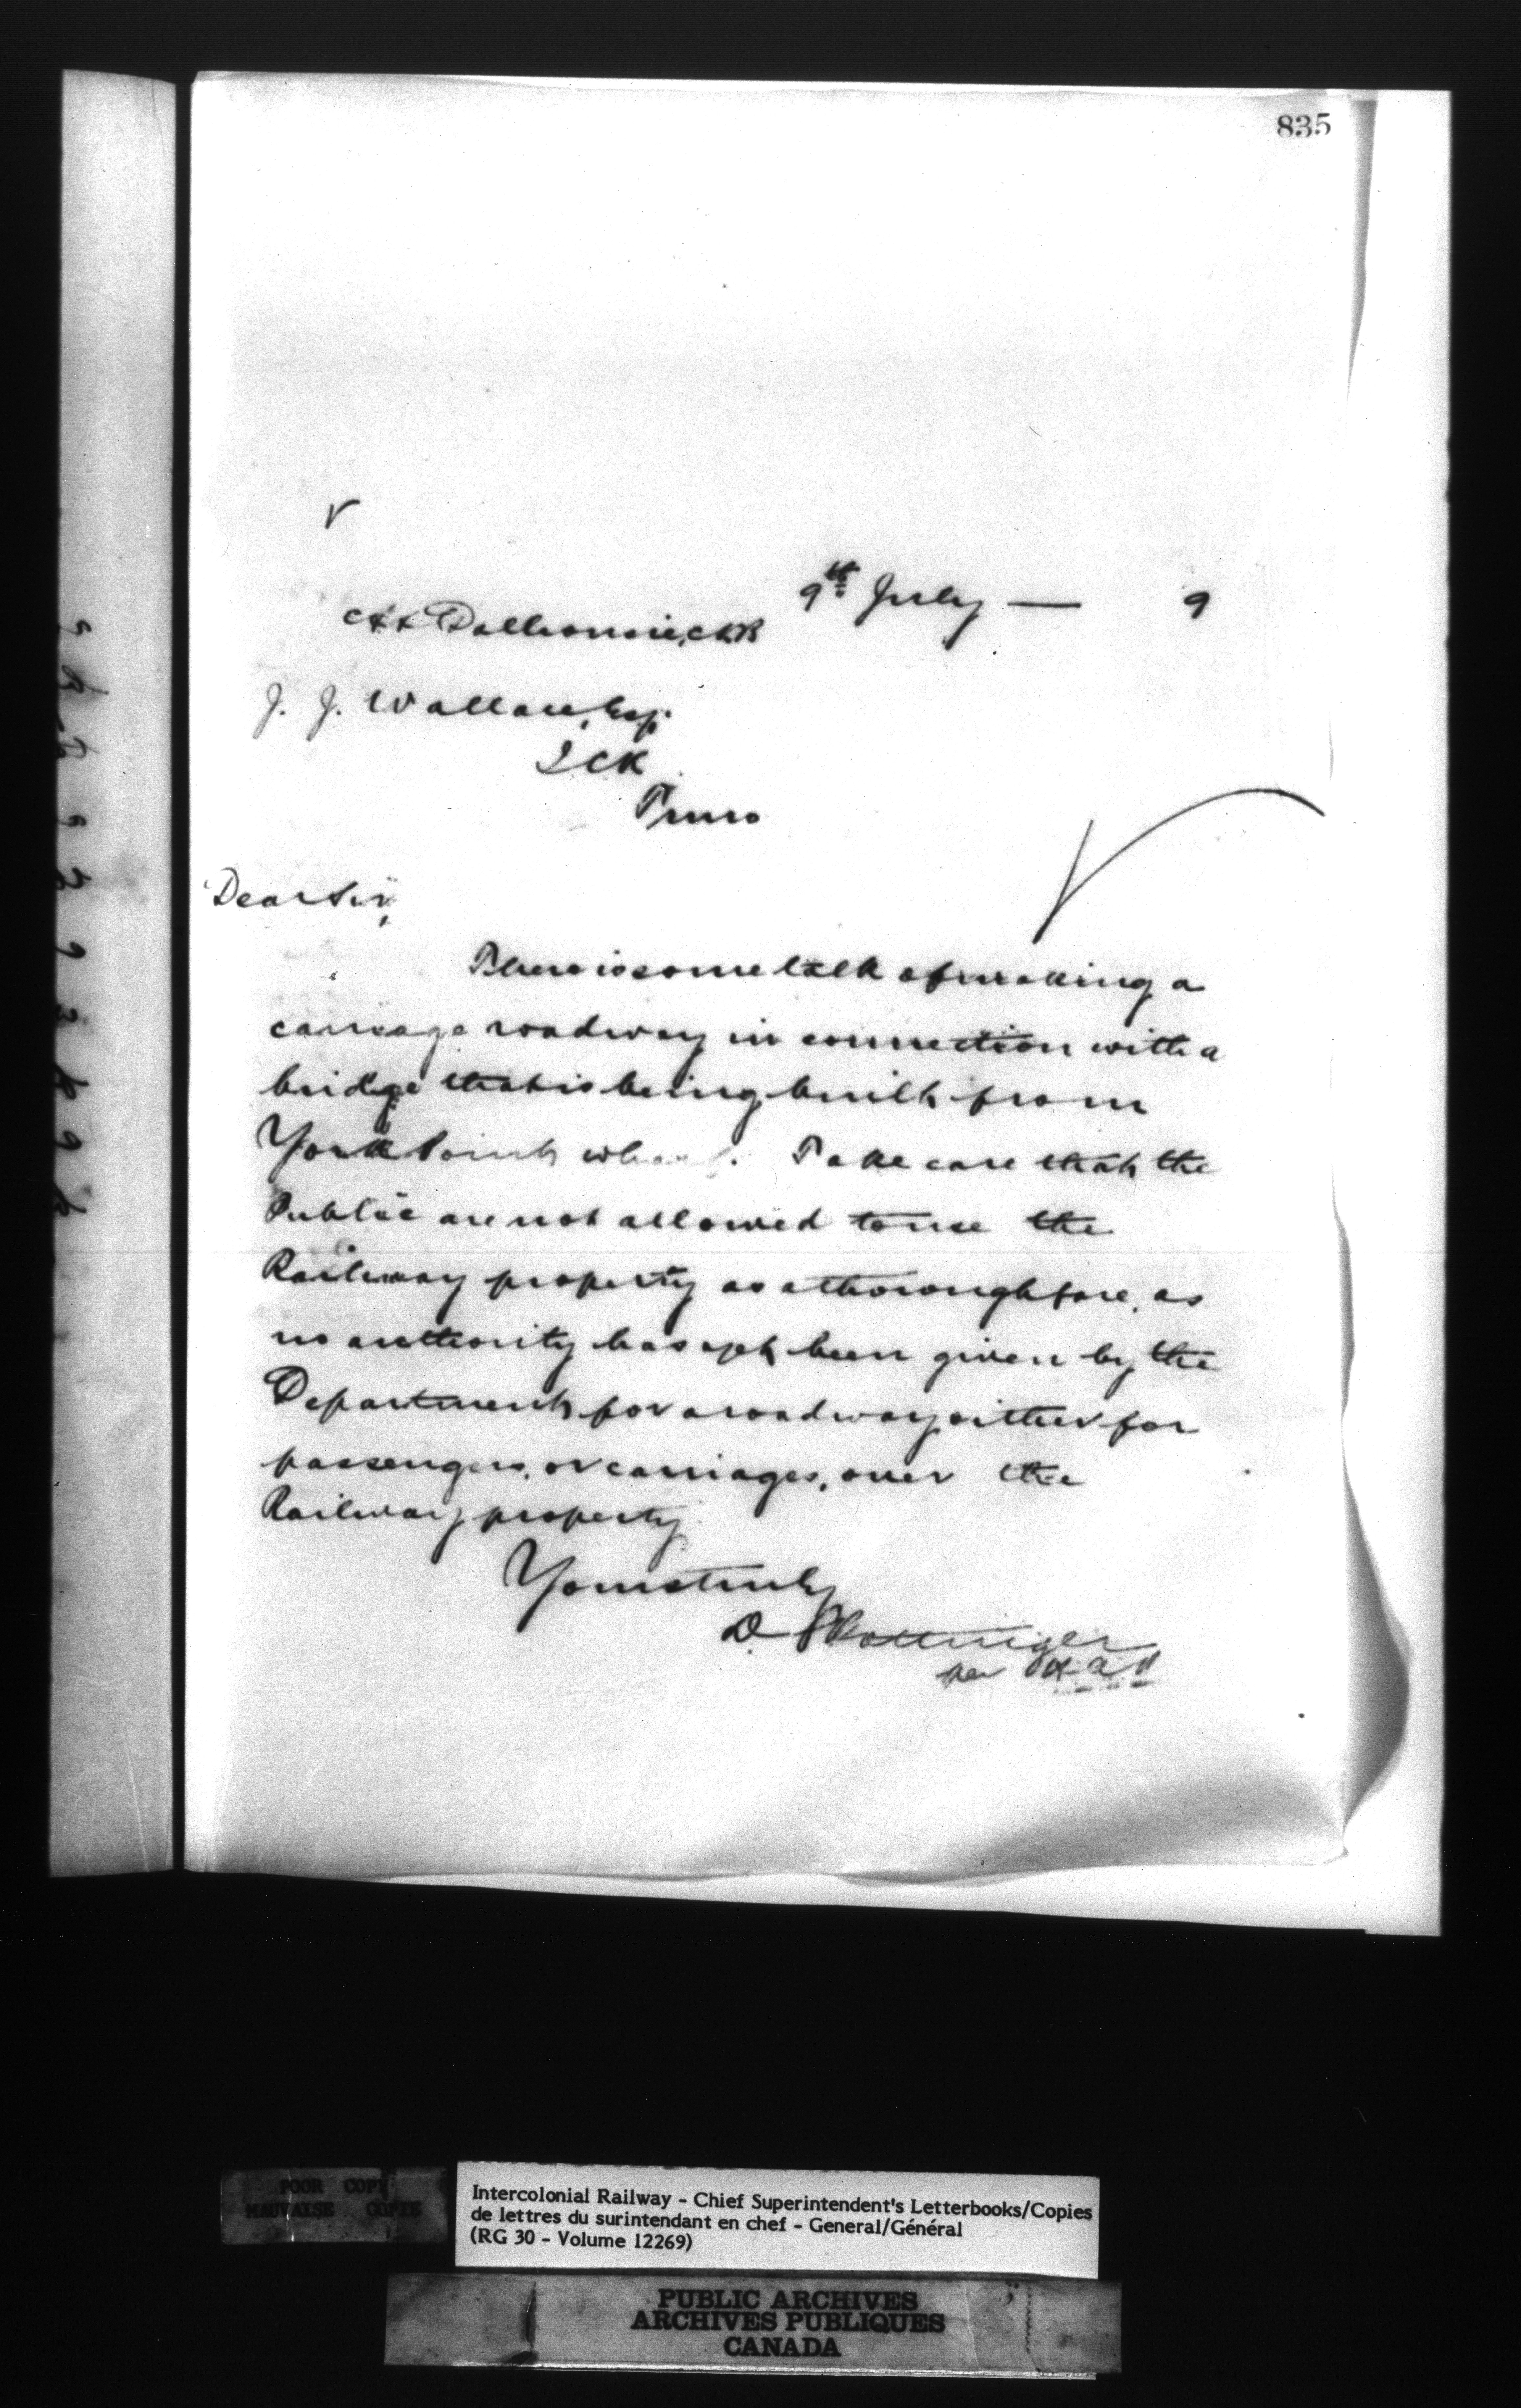 835
9th July — 9
At Dalhousie, NB
J. J. Wallace, Esq.
ICR
Truro
Dear Sir,
There is some talk of making a
carriage roadway in connection with a
bridge that is being built from
York Point wharf. Take care that the
Public are not allowed to use the
Railway property as a thoroughfare, as
no authority has yet been given by the
Department for a roadway either for
passengers, or carriages, over the
Railway property
Yours truly
D. Pottinger
per
POOR COPY
MAUVAISE COPIE
Intercolonial Railway - Chief Superintendent's Letterbooks/Copies
de lettres du surintendant en chef - General/Général
(RG 30 - Volume 12269)
PUBLIC ARCHIVES
ARCHIVES PUBLIQUES
CANADA